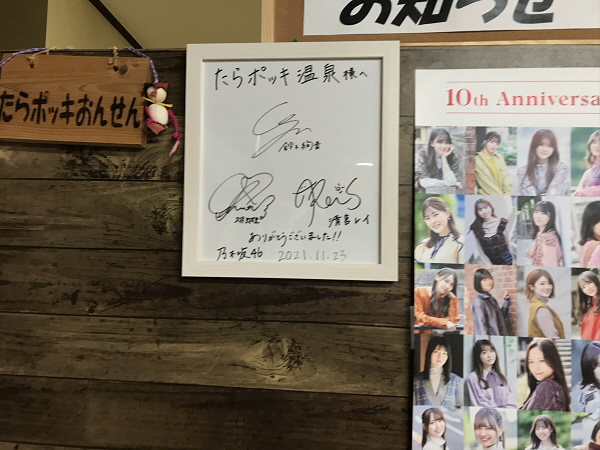 お知らせ
たらポッキおんせん
たらポッキ温泉 様へ
鈴木絢音
清宮レイ
ありがとうございました!!
乃木坂46 2021.11.23
10th Anniversa